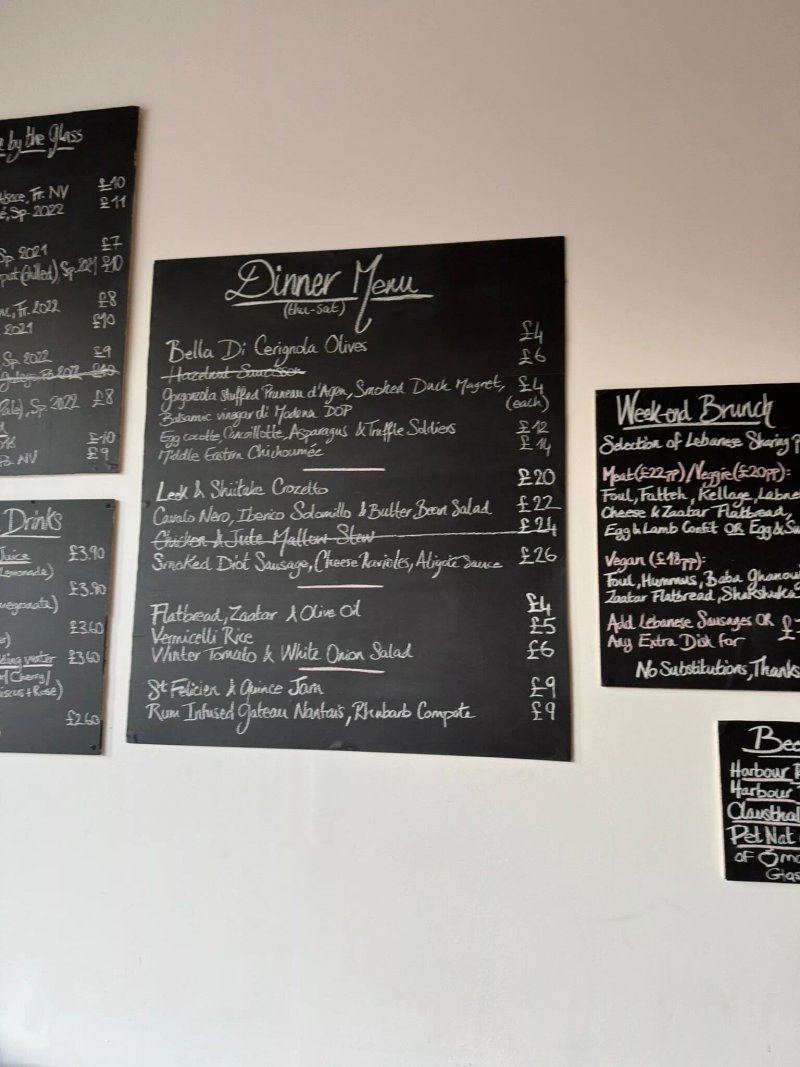 by the Glass
Fr. NV £10
Sp. 2022 £11
Sp. 2021 £7
(chilled), Sp. 2021 £10
Fr. 2022 £8
2021 £10
Sp. 2022 £9
2022 £10
Sp. 2022 £8
£10
NV £9
Drinks
Juice £3.90
Lemonade)
£3.90
£3.60
water £3.60
Cherry/
+ Rose)
£2.60
Dinner Menu
(thu-sat)
Bella Di Cerignola Olives £4
Hazelnut Saucisson £6
Gorgonzola stuffed Pruneau d'Agen, Smoked Duck Magret, £4
Balsamic vinegar di Modena DOP (each)
Egg cocotte, Cancoillotte, Asparagus & Truffle Soldiers £12
Middle Eastern Chichoumée £14
Leek & Shiitake Crozetto £20
Cavalo Nero, Iberico Solomillo & Butter Bean Salad £22
Chicken & Jute Mallow Stew £24
Smoked Diot Sausage, Cheese Ravioles, Aligote Sauce £26
Flatbread, Zaatar & Olive Oil £4
Vermicelli Rice £5
Winter Tomato & White Onion Salad £6
St Felicien & Quince Jam £9
Rum Infused Gateau Nantais, Rhubarb Compote £9
Week-end Brunch
Selection of Lebanese Sharing
Meat (£22pp) / Veggie (£20pp):
Foul, Fatteh, Kellage,
Cheese & Zaatar Flatbread,
Egg & Lamb Confit OR Egg &
Vegan (£18pp):
Foul, Hummus, Baba
Zaatar Flatbread, Shakshuka
Add Lebanese Sausages OR
Any Extra Dish for £
No Substitutions, Thanks
Harbour
Harbour
Pet Nat
of